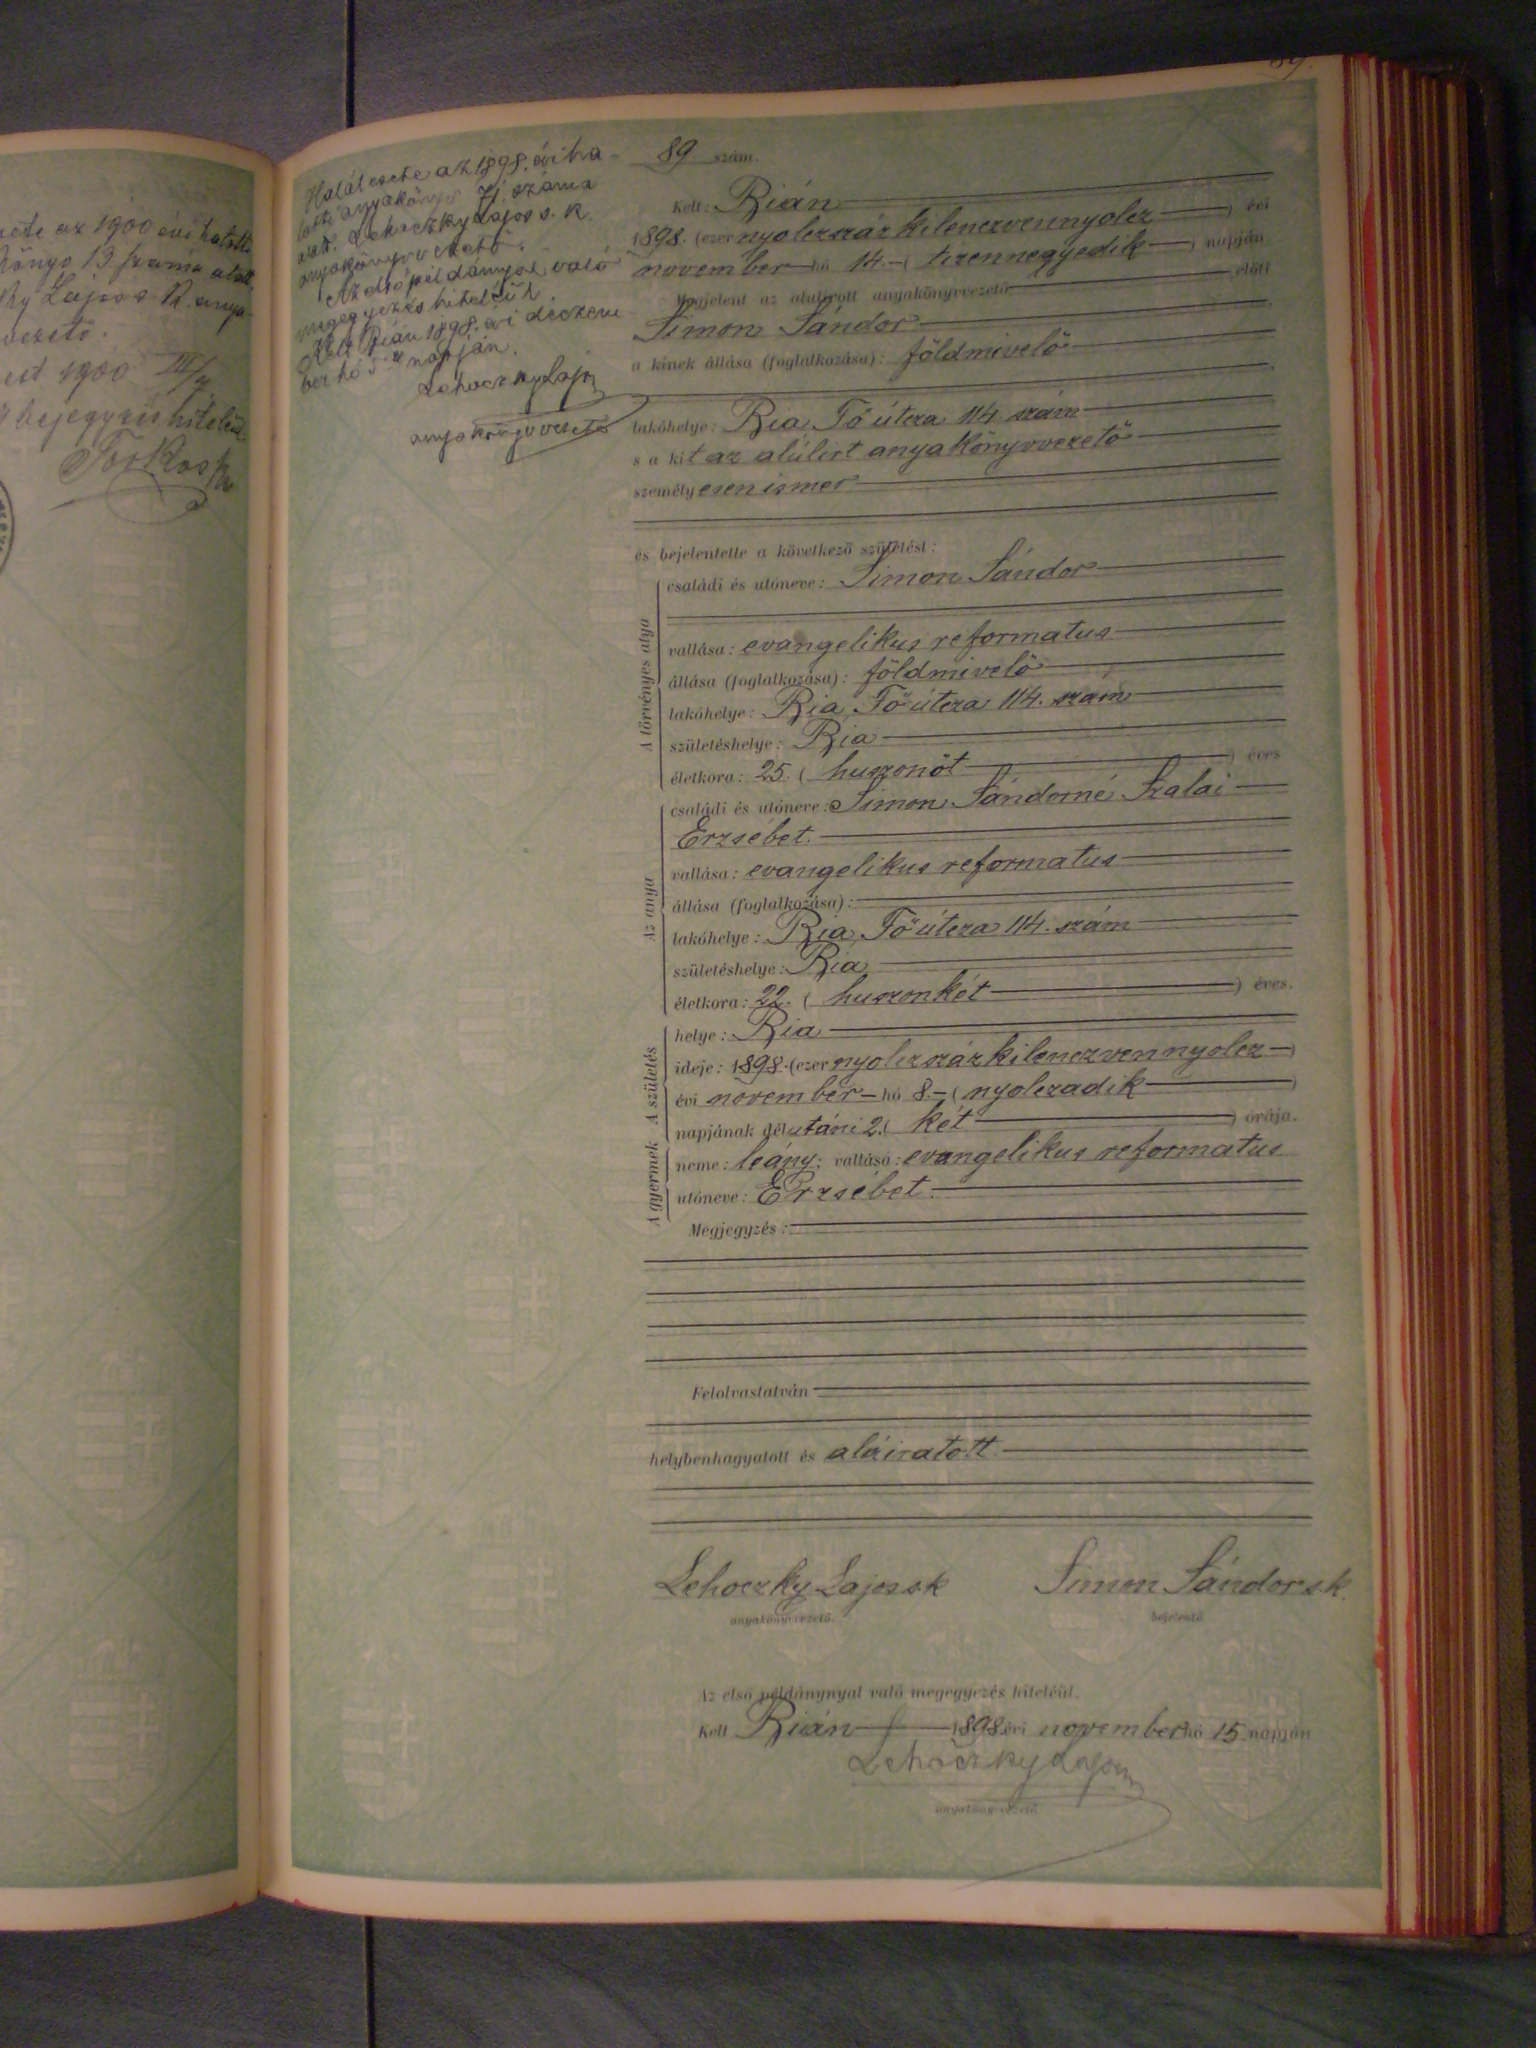 nete az 1900 évi halotti
könyv 13 száma alatt.
ky Lajos k. anya-
vezető.
est 1900 III/
bejegyzés hiteléül
89.
Halálesete az 1898. évi ha-
lotti anyakönyv 71. száma
alatt. Lehoczky Lajos s. k.
anyakönyvvezető.
Az első példánynyal való
megegyezés hiteléül
Kelt Rián 1898. évi deczem-
ber hó 5-én napján.
Lehoczky Lajos
anyakönyvvezető
89. szám.
Kelt: Rián évi
1898. (ezernyolczszázkilenczvennyolcz) évi
november hó 14.-(tizennegyedik) napján
Megjelent az alulírott anyakönyvvezető előtt
Simon Sándor
a kinek állása (foglalkozása): földmivelő
lakóhelye: Ria Fő útcza 114. szám
s a kit az alúlirt anyakönyvvezető
személyesen ismer
és bejelentette a következő születést:
A törvényes atya
családi és utóneve: Simon Sándor
vallása: evangelikus reformatus
állása (foglalkozása): földmivelő
lakóhelye: Ria, Fő útcza 114. szám
születéshelye: Ria
életkora: 25. (huszonöt) éves
Az anya
családi és utóneve: Simon Sándorné Szalai
Erzsébet.
vallása: evangelikus reformatus
állása (foglalkozása):
lakóhelye: Ria, Fő útcza 114. szám
születéshelye: Ria
életkora: 22. (huszonkét) éves.
A születés
helye: Ria
ideje: 1898.-(ezernyolczszázkilenczvennyolcz-)
évi november- hó 8.-(nyolczadik)
napjának délutáni 2. (két) órája.
A gyermek
neme: leány; vallása: evangelikus reformatus
utóneve: Erzsébet.
Megjegyzés:
Felolvastatván
helybenhagyatott és aláiratott
Lehoczky Lajos sk Simon Sándor s.k.
anyakönyvvezető. bejelentő
Az első példánynyal való megegyezés hiteléül.
Kelt Rián 1898. évi november hó 15 napján
Lehoczky Lajos
anyakönyvvezető